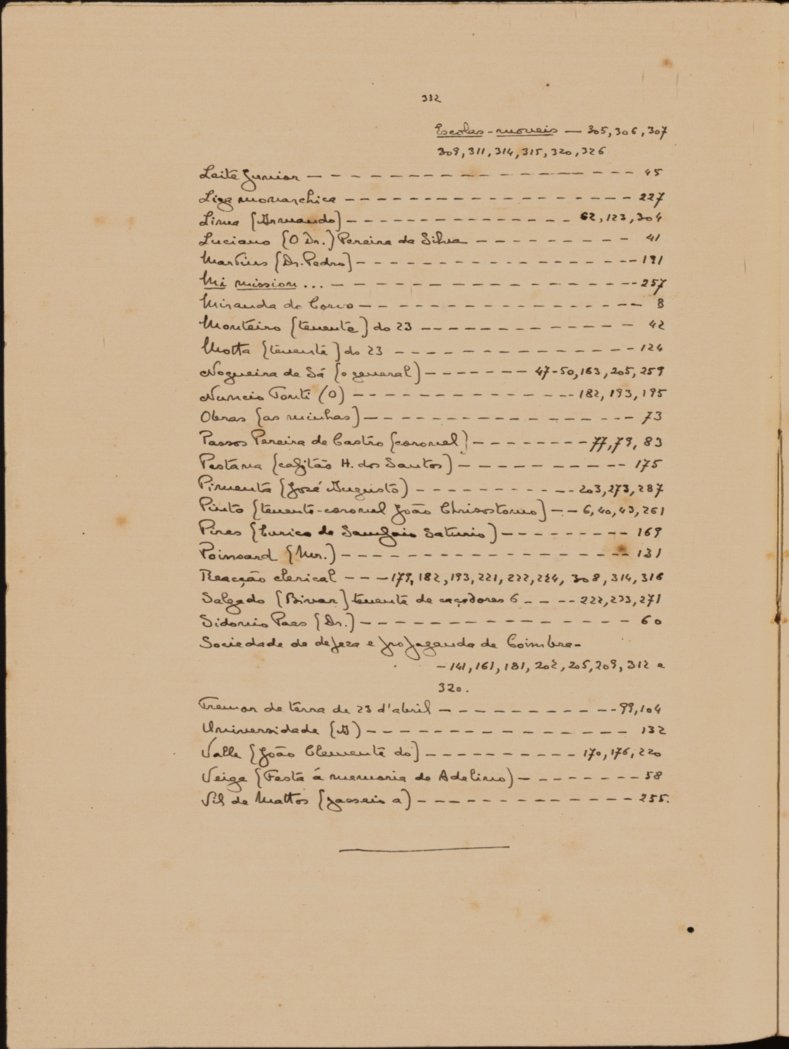 332
Escolas-moveis — 305, 306, 307
309, 311, 314, 315, 320, 326
Leite Junior — — — — — — — — — — — 45
Liga monarchica — — — — — — — — — — 227
Lima [Armando] — — — — — — — — — 62, 123, 304
Luciano [O Dr.] Pereira da Silva — — — — — — — 41
Martins [Dr. Pedro] — — — — — — — — — — 191
Mi mission ... — — — — — — — — — — — 257
Miranda do Corvo — — — — — — — — — — 8
Monteiro [tenente] do 23 — — — — — — — — — 42
Motta [tenente] do 23 — — — — — — — — — 124
Nogueira de Sá [o general] — — — — — — 47-50, 163, 205, 259
Nuncio Tonti (O) — — — — — — — — — 182, 193, 195
Obras [as minhas] — — — — — — — — — — 73
Passos Pereira de Castro [coronel] — — — — — — 77, 79, 83
Pestana [capitão H. dos Santos] — — — — — — — 175
Pimenta [José Augusto] — — — — — — — — 203, 273, 287
Pinto [tenente-coronel João Chrisostomo] — — 6, 40, 43, 261
Pires [Eurico de Sampaio Saturio] — — — — — — 169
Poinsard [Mr.] — — — — — — — — — — — 131
Reacção clerical — — — 179, 182, 193, 221, 222, 224, 308, 314, 316
Salgado [Bivar] tenente de caçadores 6 — — — — 222, 233, 271
Sidonio Paes [Dr.] — — — — — — — — — — 60
Sociedade de defeza e propaganda de Coimbra —
— 141, 161, 181, 202, 205, 209, 312 e
320.
Tremor de terra de 23 d'abril — — — — — — — — 99, 104
Universidade [A] — — — — — — — — — — 132
Valle [João Clemente do] — — — — — — — 170, 176, 220
Veiga [Festa á memoria de Adelino] — — — — — — 58
Vil de Mattos [passeio a] — — — — — — — — — 255.